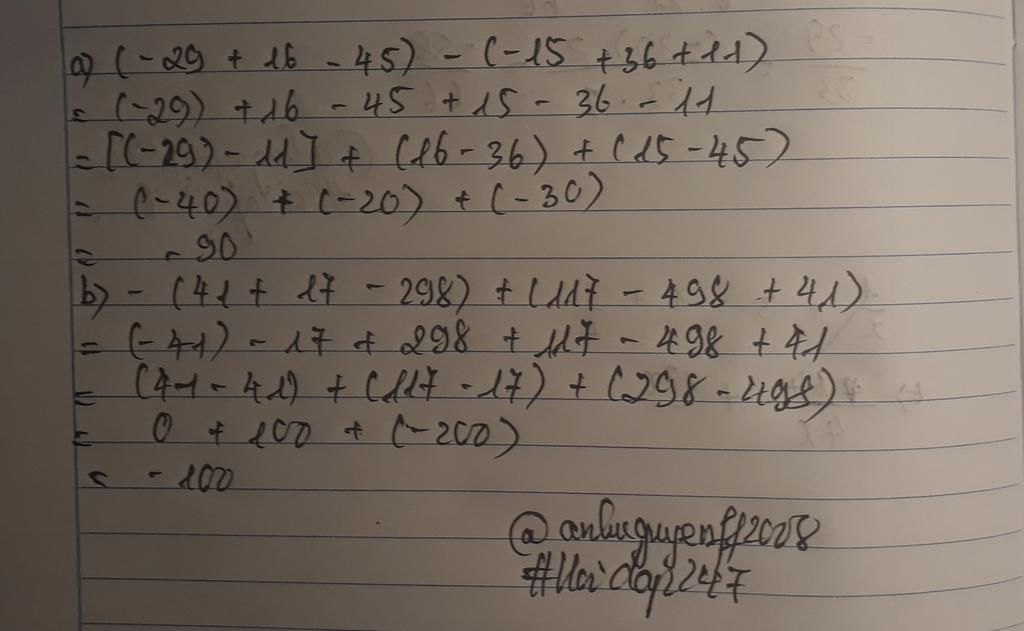 a) (-29 + 16 - 45) - (-15 + 36 + 11)
= (-29) + 16 - 45 + 15 - 36 - 11
= [(-29) - 11] + (16 - 36) + (15 - 45)
= (-40) + (-20) + (-30)
= -90
b) - (41 + 17 - 298) + (117 - 498 + 41)
= (-41) - 17 + 298 + 117 - 498 + 41
= (41 - 41) + (117 - 17) + (298 - 498)
= 0 + 100 + (-200)
= -100
#Hoidap247